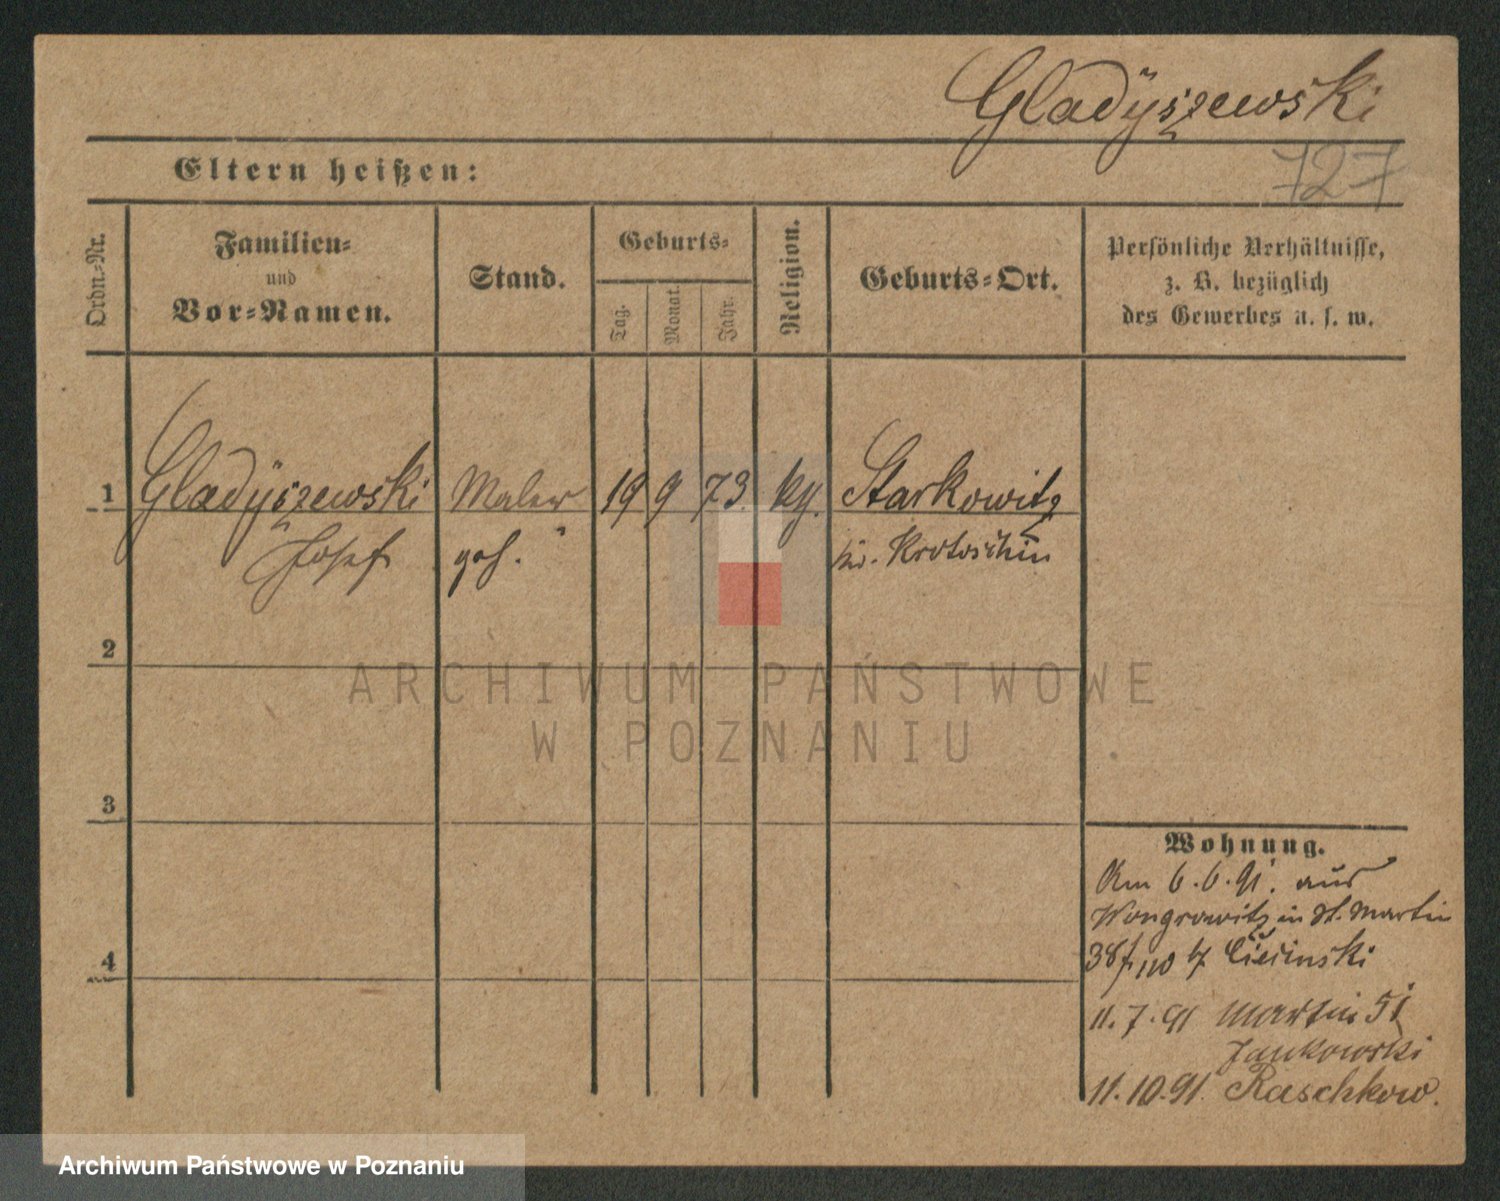 Gladÿszewski
727
Eltern heißen:
Ordn.=Nr.
Familien=
und
Vor=Namen.
Stand.
Geburts=
Tag.
Monat.
Jahr.
Religion.
Geburts=Ort.
Persönliche Verhältnisse,
z. B. bezüglich
des Gewerbes u. s. w.
1 Gladÿszewski Maler 19 9 73. Starkowitz
Josef geh. Krotoschin
2
3
4
ARCHIWUM PAŃSTWOWE
W POZNANIU
Wohnung.
Am 6.6.91. aus
Wongrowitz in St. Martin
38 Cicinski
11.7.91 Martin 51
Jankowski
11.10.91. Raschkow.
Archiwum Państwowe w Poznaniu